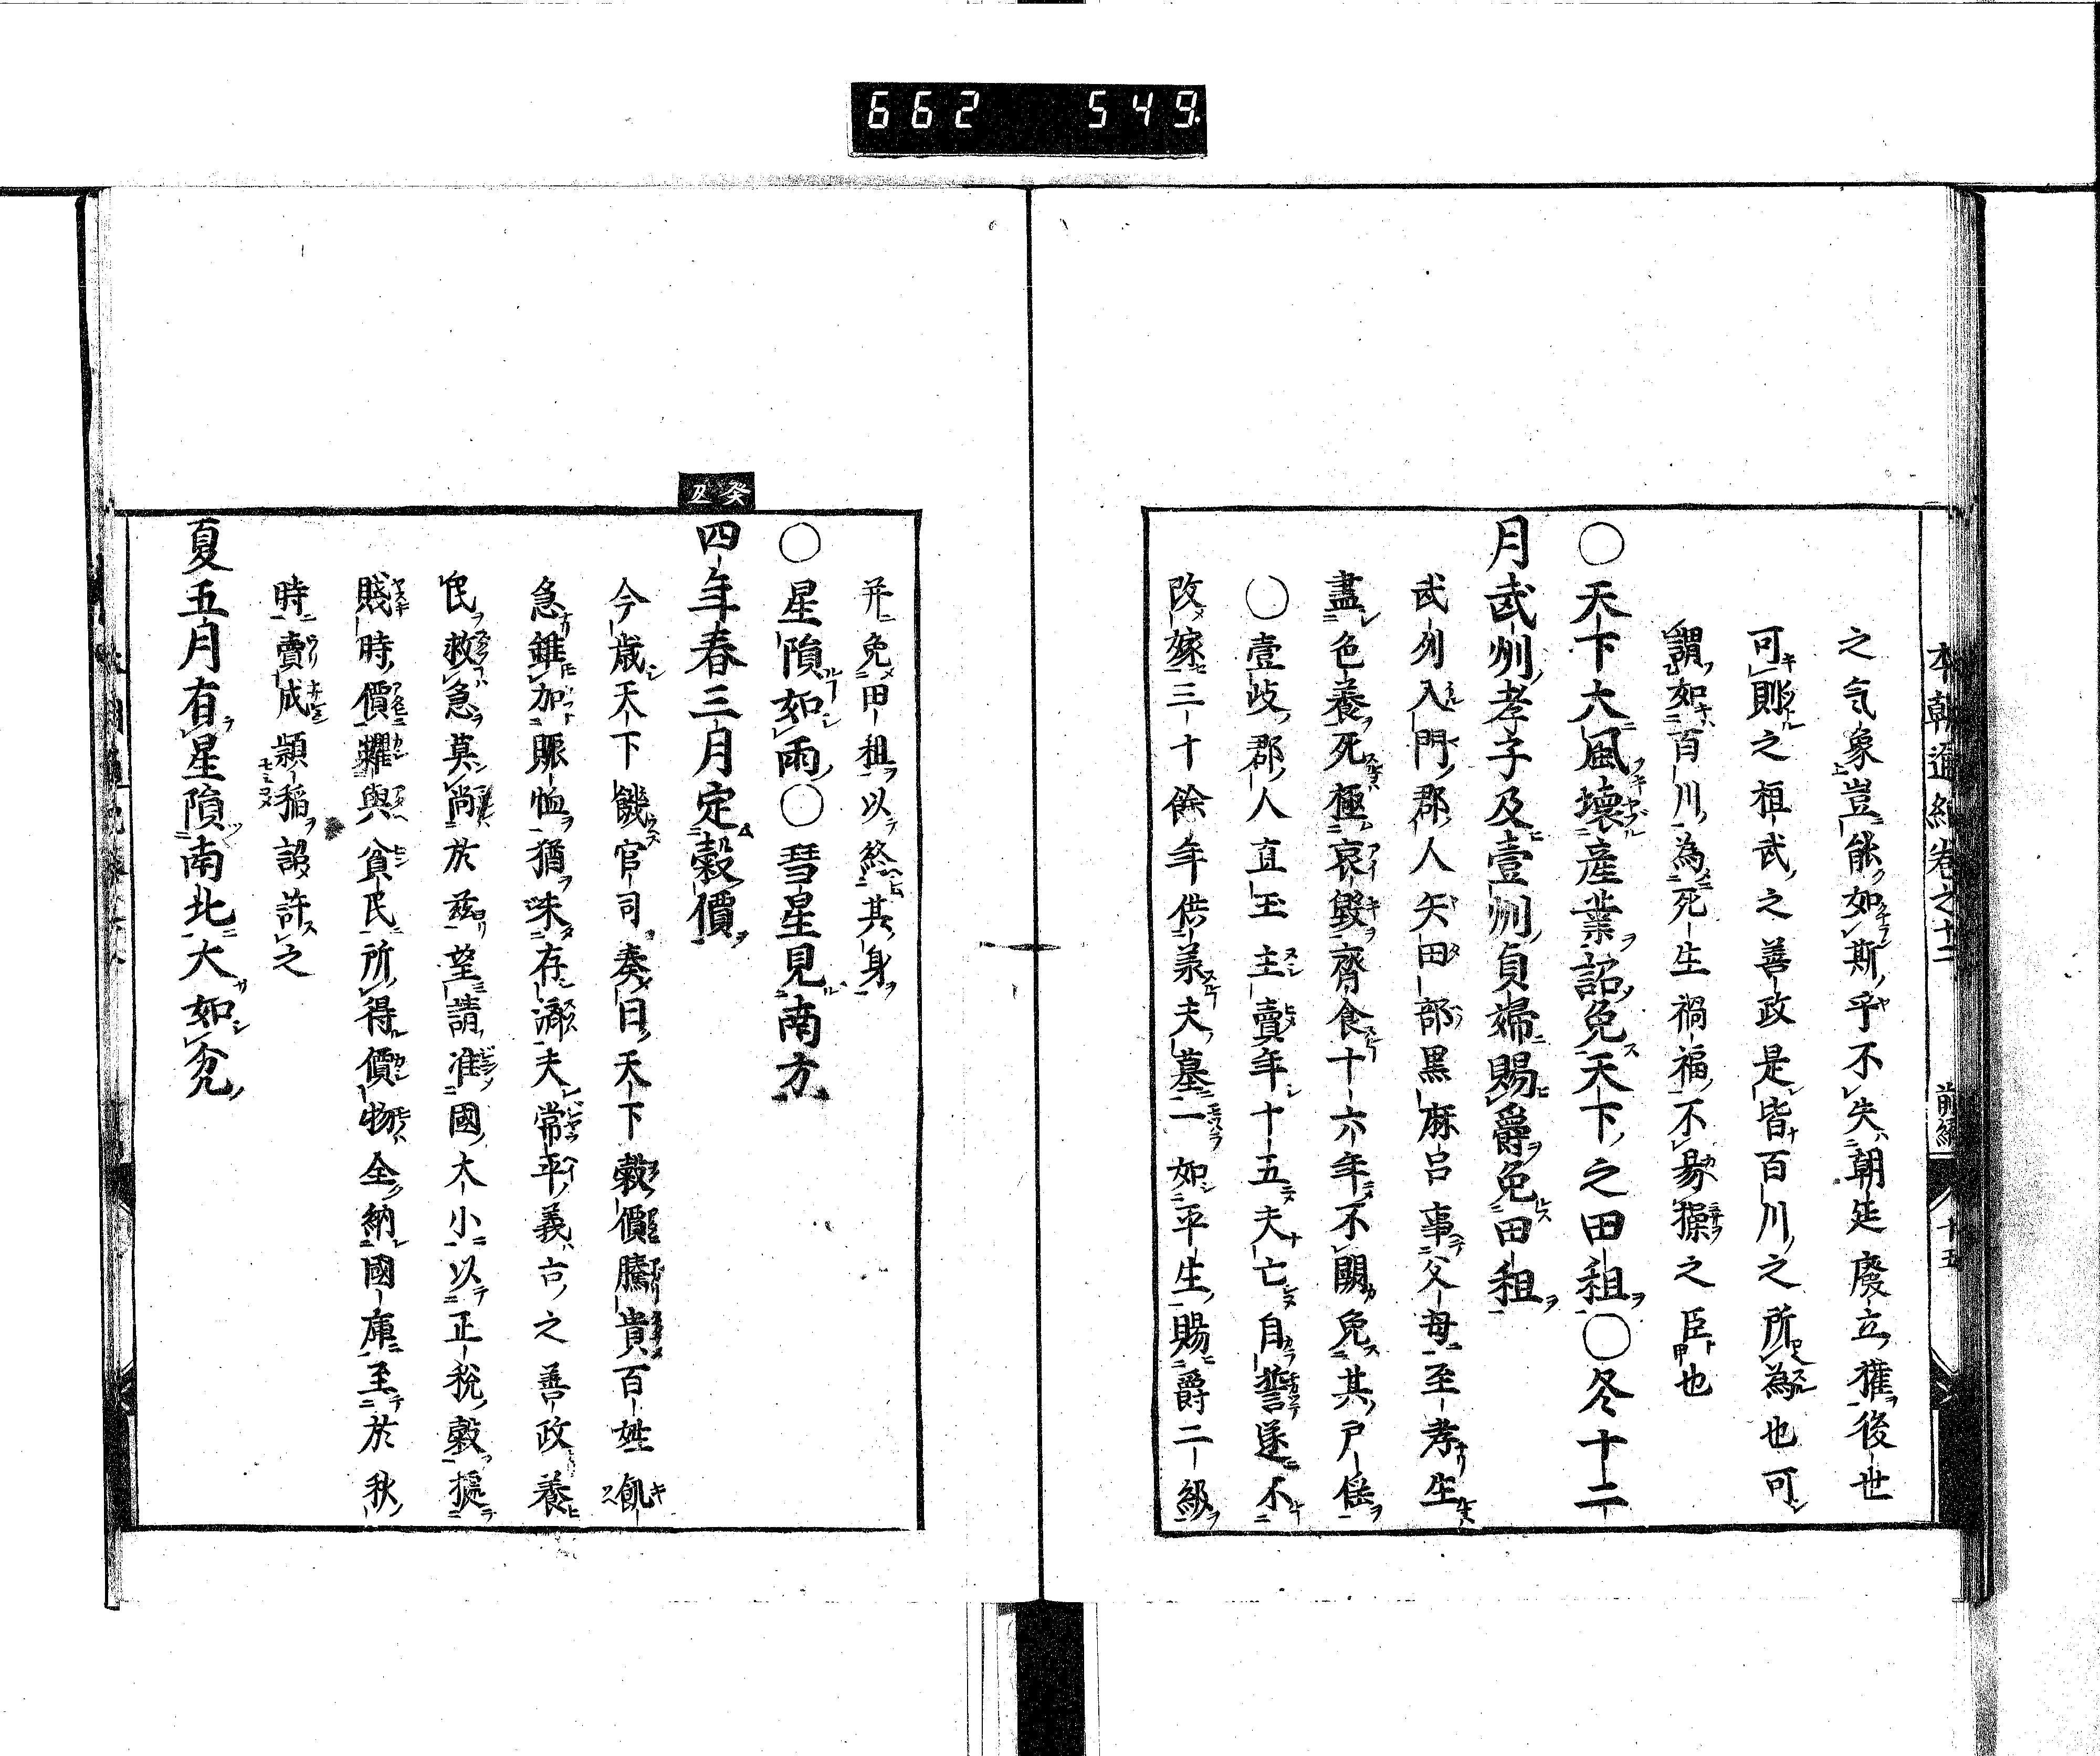 662 549
本朝通紀卷之十二 前編 十五
之气象豈能如斯乎不失朝廷廢立權後世
可則之祖武之善政是皆百川之所為也可
謂如百川為死生禍福不易操之臣也
○天下大風壊產業詔免天下之田租○冬十二
月武州孝子及壹州貞婦賜爵免田租
武州入門郡人矢田部黑麻呂事父母至孝生
盡色養死極哀毀齊食十六年不闕免其戶徭
○壹岐郡人直玉主賣年十五夫亡自誓遂不
改嫁三十餘年供羕夫墓一如平生賜爵二級
并免田租以終其身
○星隕如雨○彗星見南方
癸丑
四年春三月定穀價
今歲天下饑官司奏曰天下穀價騰貴百姓飢
急雖加賑恤猶未存濟夫常平義古之善政養
民救急莫尚於茲望請准國大小以正稅穀據
賤時價糶與貧民所得價物全納國庫至於秋
時賣成穎稲詔許之
夏五月有星隕南北大如瓫